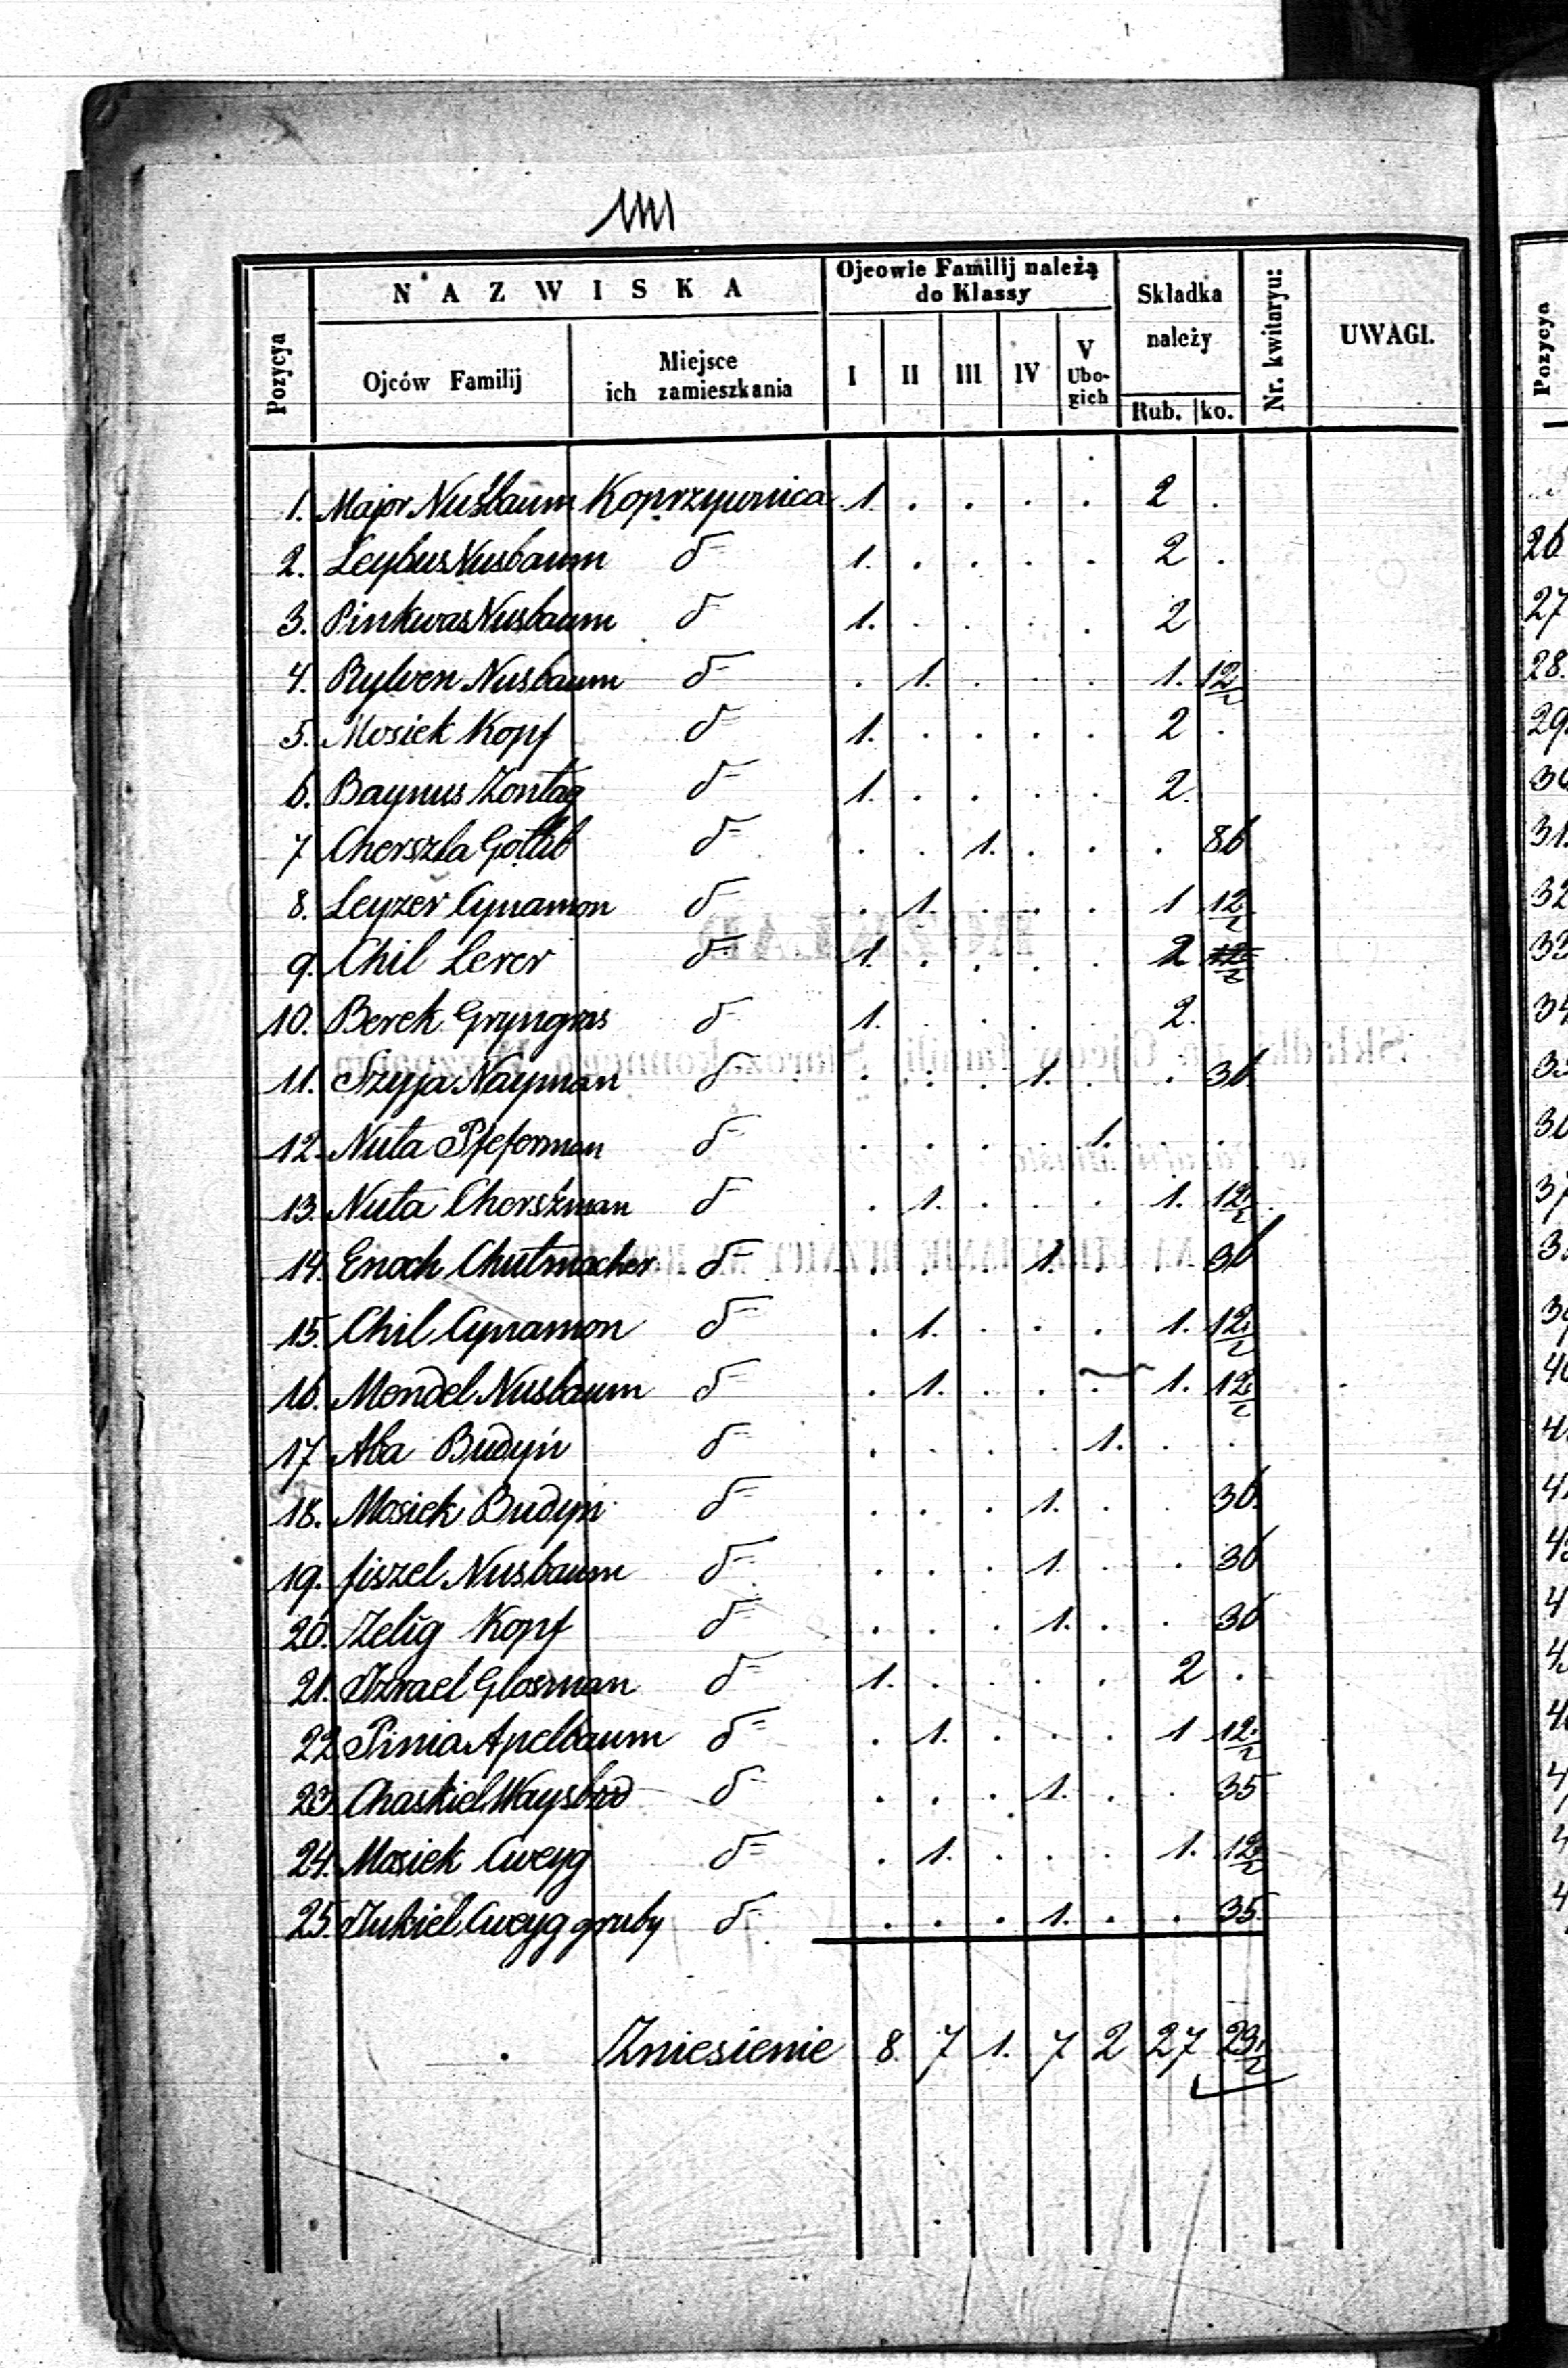 NAZWISKA
Ojcowie Familij należą do Klassy
Składka należy
Pozycya
Ojców Familij
Miejsce ich zamieszkania
I II III IV V Ubogich
Rub. ko.
Nr. kwitaryu:
UWAGI.
1. Major Nusbaum Koprzywnica 1. . . . . 2 .
2. Leybus Nusbaum d= 1. . . . . 2 .
3. Pinkwas Nusbaum d= 1. . . . . 2
4. Rylven Nusbaum d= . 1. . . . 1. 12½
5. Mosiek Kopf d= 1. . . . . 2 .
6. Baynus Zontag d= 1. . . . . 2.
7 Cherszla Gotlib d= . . 1. . . . 86
8. Leyzer Cynamon d= . 1. . . . 1 12½
9. Chil Lerer d= 1. . . . . 2
10. Berek Gryngras d= 1. . . . . 2.
11. Szyja Nayman d= . . . 1. . . 36.
12. Nuta Pfeferman d= . . . . 1. . .
13. Nuta Chorszman d= . 1. . . . 1. 12½
14. Enoch Chutmacher d= . . . 1. . 36
15. Chil Cynamon d= . 1. . . . 1. 12½
16. Mendel Nusbaum d= . 1. . . . 1. 12½
17 Aba Budyń d= . . . . 1. . .
18. Mosiek Budyń d= . . . 1. . . 36.
19. Fiszel Nusbaum d= . . . 1. . . 36
20. Zelig Kopf d= . . . 1. . . 36
21. Izrael Glosman d= 1. . . . . 2 .
22. Pinia Apelbaum d= . 1. . . . 1 12½
23. Chaskiel Waysbrod d= . . . 1. . . 35
24. Mosiek Cweyg d= . 1. . . . 1. 12½
25. Cweyg gruby d= . . . 1. . . 35.
Zniesienie 8. 7 1. 7 2 27 23½
Pozycya
26
27
28.
29.